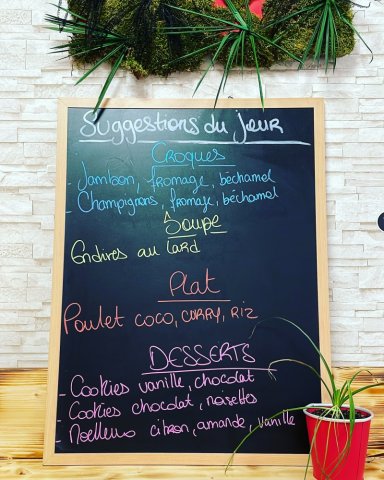 Suggestions du jour
Croques
- Jambon, fromage, béchamel
- Champignons, fromage, béchamel
Soupe
Endives au lard
Plat
Poulet coco, curry, riz
DESSERTS
- Cookies vanille, chocolat
- Cookies chocolat, noisettes
- Moelleux citron, amande, vanille